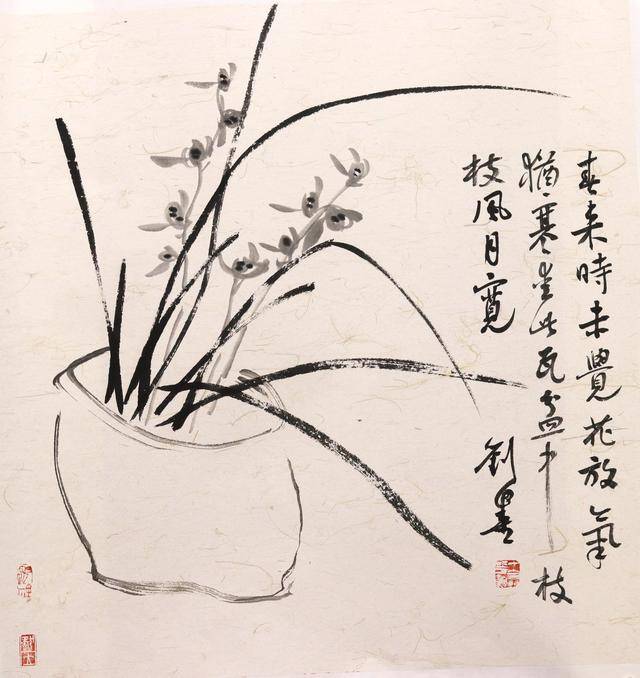 春来時未覺花放氣
猶寒愛此瓦盆中枝
枝風月寬
劉墨